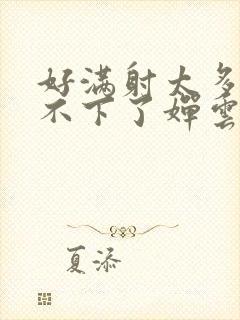 好满射太多
不下了婵雲
夏添